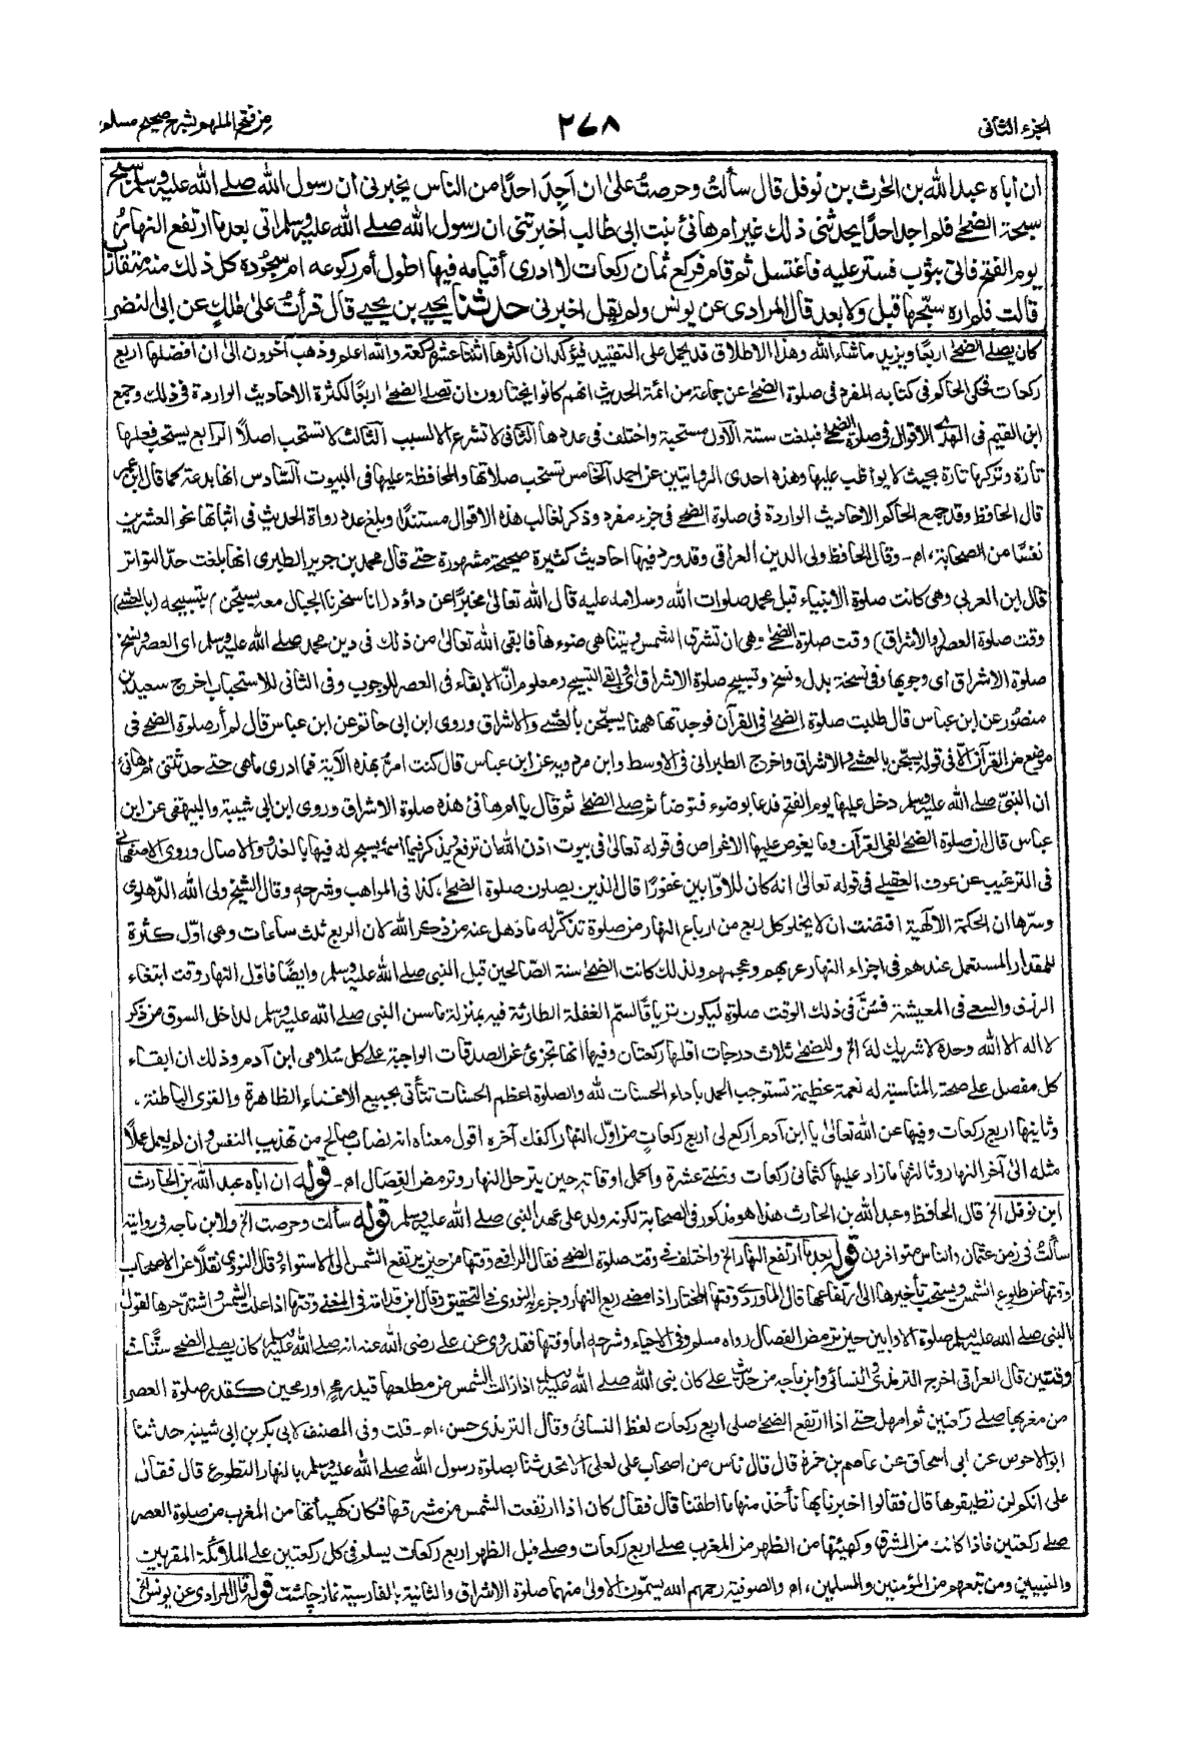 الجزء الثاني
٢٦٨
من فتح الملهم بشرح صحيح مسلم
ان اباه عبد الله بن الحٰرث بن نوفل قال سألتُ وحرصتُ علىٰ ان اَجِدَ احدًا من الناس يخبرني ان رسول الله صلے الله عليه وسلم سبّح
سبحة الضحىٰ فلم اجد احدًا يحدثني ذٰلك غير ام هانئ بنت ابي طالب اخبرتني ان رسول الله صلے الله عليه وسلم اتى بعد ما ارتفع النهار
يوم الفتح فاتي بثوب فستر عليه فاغتسل ثم قام فركع ثمان ركعات لا ادرى أقيامه فيها اطول أم ركوعه ام سجوده كل ذٰلك منه متقارب
قالت فلم اره سبّحها قبل ولا بعد قال المرادى عن يونس ولم يقل اخبرني حدثنا يحيے بن يحيے قال قرأتُ علىٰ مٰلكٍ عن ابى النضر
كان يصلے الضحىٰ اربعًا ويزيد ما شاء الله وهذا الاطلاق قد يحمل على التقييد فيؤكد ان اكثرها اثنتا عشرة ركعة والله اعلم وذهب آخرون الىٰ ان افضلها اربع
ركعات فحكى الحاكم فى كتابه المفرد فى صلوة الضحىٰ عن جماعة من ائمة الحديث انهم كانوا يختارون ان تصلے الضحىٰ اربعًا لكثرة الاحاديث الواردة فى ذٰلك وجمع
ابن القيم فى الهدى الاقوال فى صلوة الضحىٰ فبلغت ستة الاول مستحبة واختلف فى عددها الثانى لا تشرع الا لسبب الثالث لا تستحب اصلاً الرابع يستحب فعلها
تارة وتركها تارة بحيث لا يواظب عليها وهذه احدى الروايتين عن احمد الخامس تستحب صلاتها والمحافظة عليها فى البيوت السادس انها بدعة كما قال ابن عمر
قال الحافظ وقد جمع الحاكم الاحاديث الواردة فى صلوة الضحىٰ فى جزء مفرد وذكر لغالب هذه الاقوال مستندًا وبلغ عدد رواة الحديث فى اثباتها نحو العشرين
نفسًا من الصحابة، ام ۔ وقال الحافظ ولى الدين العراقى وقد ورد فيها احاديث كثيرة صحيحة مشهورة حتے قال محمد بن جرير الطبرى انها بلغت حد التواتر
قال ابن العربي وهى كانت صلوة الانبياء قبل محمد صلوات الله وسلامه عليه قال الله تعالىٰ مخبرًا عن داؤد (انا سخرنا الجبال معه يسبحن) بتسبيحه (بالعشى)
وقت صلوة العصر (والاشراق) وقت صلوة الضحىٰ وهى ان تشرق الشمس ويتناهى ضوءها فابقى الله تعالىٰ من ذٰلك فى دين محمد صلے الله عليه وسلم اى العصر ونسخ
صلوة الاشراق اى وجوبها وفى نسخة بدل ونسخ وتسبيح صلوة الاشراق اى وابقى التسبيح ومعلوم انّ الابقاء فى العصر للوجوب وفى الثانى للاستحباب اخرج سعيد بن
منصور عن ابن عباس قال طلبت صلوة الضحىٰ فى القرآن فوجدتها ههنا يسبّحن بالعشے والاشراق وروى ابن ابى حاتم عن ابن عباس قال لم أر صلوة الضحىٰ فى
موضع من القرآن الا فى قوله يسبّحن بالعشے والاشراق واخرج الطبرانى فى الاوسط وابن مردويه عن ابن عباس قال كنت امرّ بهذه الآية فما ادرى ما هى حتے حدثتنى ام هانئ
ان النبىّ صلے الله عليه وسلم دخل عليها يوم الفتح فدعا بوضوء فتوضأ ثم صلے الضحىٰ ثم قال يا ام هانئ هذه صلوة الاشراق وروى ابن ابى شيبة والبيهقى عن ابن
عباس قال ان صلوة الضحىٰ لفى القرآن وما يغوص عليها الا غواص فى قوله تعالىٰ فى بيوت اذن الله ان ترفع ويذكر فيها اسمه يسبح له فيها بالغدو والاٰصال وروى الاصفهانى
فى الترغيب عن عوف العقيلے فى قوله تعالىٰ انه كان للاوّابين غفورًا قال الذين يصلون صلوة الضحىٰ، كذا فى المواهب وشرحه وقال الشيخ ولى الله الدّهلوى
وسرّها ان الحكمة الالٰهية اقتضت ان لا يخلو كل ربع من ارباع النهار من صلوة تذكّر له ما ذهل عنه من ذكر الله لان الربع ثلث ساعات وهى اوّل كثرة
للمقدار المستعمل عندهم فى اجزاء النهار عربهم وعجمهم ولذٰلك كانت الضحىٰ سنة الصّالحين قبل النبى صلے الله عليه وسلم وايضًا فاوّل النهار وقت ابتغاء
الرزق والسعے فى المعيشة فسُنَّ فى ذٰلك الوقت صلوة ليكون ترياقًا لسمّ الغفلة الطارئة فيه بمنزلة ما سن النبى صلے الله عليه وسلم لداخل السوق من ذكر
لا اله الا الله وحده لا شريك له الخ وللضحىٰ ثلاث درجات اقلها ركعتان وفيها انها تجزئ عن الصدقات الواجبة على كل سُلامى ابن آدم وذٰلك ان ابقاء
كل مفصل على صحته المناسبة له نعمة عظيمة تستوجب الحمد باداء الحسنات لله والصلوة اعظم الحسنات تتأتى بجميع الاعضاء الظاهرة والقوى الباطنة،
وثانيها اربع ركعات وفيها عن الله تعالىٰ يا ابن آدم اركع لى اربع ركعاتٍ من اوّل النهار اكفك آخره اقول معناه انه نصاب صالح من تهذيب النفس وان لم يعمل عملاً
مثله الىٰ آخر النهار وثالثها ما زاد عليها كثمانى ركعات وثنتے عشرة واكمل اوقاته حين يترحل النهار وترمض الفصال ام ۔ قوله ان اباه عبد الله بن الحارث
ابن نوفل الخ قال الحافظ وعبد الله بن الحارث هذا هو مذكور فى الصحابة لكونه ولد على عهد النبى صلے الله عليه وسلم قوله سألت وحرصت الخ ولابن ماجه فى رواية
سألتُ فى زمن عثمان والناس متوافرون قوله بعد ما ارتفع النهار الخ واختلف فى وقت صلوة الضحىٰ فقال الرافعى وقتها من حين يرتفع الشمس الى الاستواء وقال النووى نقلاً عن الاصحاب
وقتها من طلوع الشمس ويستحب تأخيرها الى ارتفاعها قال الماوردى وقتها المختار اذا مضے ربع النهار وجزم به النووى فى التحقيق وقال ابن قدامة فى المغنى وقتها اذا علت الشمس واشتد حرها لقول
النبى صلے الله عليه وسلم صلوة الاوابين حين ترمض الفصال رواه مسلم وفى الاحياء وشرحه اما وقتها فقد روى عن على رضى الله عنه انه صلے الله عليه وسلم كان يصلے الضحىٰ ستًّا فى
وقتين قال العراقى اخرج الترمذى والنسائى وابن ماجه من حديث على كان نبى الله صلے الله عليه وسلم اذا زالت الشمس من مطلعها قيد رمح او رمحين كقدر صلوة العصر
من مغربها صلے ركعتين ثم امهل حتے اذا ارتفع الضحىٰ صلى اربع ركعات لفظ النسائى وقال الترمذى حسن، ام ۔ قلت وفى المصنف لابى بكر بن ابى شيبه حدثنا
ابو الاحوص عن ابى اسحاق عن عاصم بن ضمرة قال قال ناس من اصحاب على لعلى الا تحدثنا بصلوة رسول الله صلے الله عليه وسلم بالنهار التطوع قال فقال
على انكم لن تطيقوها قال فقالوا اخبرنا بها نأخذ منها ما اطقنا قال فقال كان اذا ارتفعت الشمس من مشرقها فكان كهيأتها من المغرب من صلوة العصر
صلے ركعتين فاذا كانت من المشرق وكهيئتها من الظهر من المغرب صلے اربع ركعات وصلے قبل الظهر اربع ركعات يسلم فى كل ركعتين على الملائكة المقربين
والنبيين ومن تبعهم من المؤمنين والمسلمين، ام والصوفية رحمهم الله يسمّون الاولىٰ منهما صلوة الاشراق والثانية بالفارسية نماز چاشت قوله قال المرادى عن يونس الخ